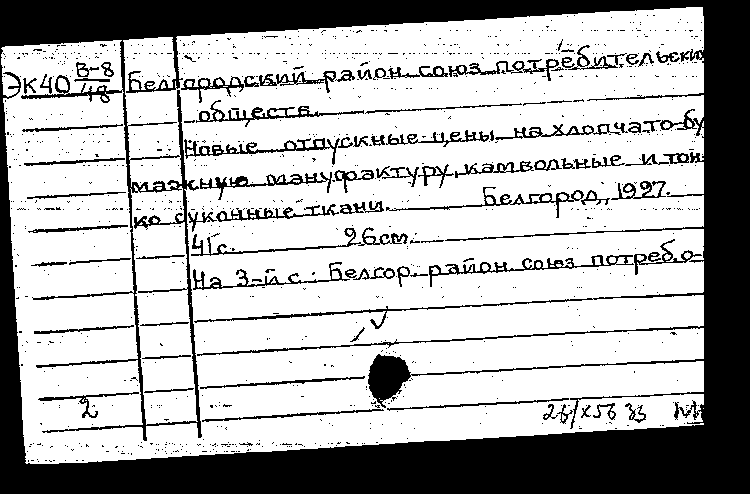 ЭК40 В-8/48 Белгородский район. союз потребительских
обществ.
Новые отпускные цены на хлопчато-бу
мажную мануфактуру, камвольные и тон-
ко суконные ткани. Белгород, 1927.
41 с. 26 см.
На 3-й с.: Белгор. район. союз потреб. о-
2 26/X 56 зз